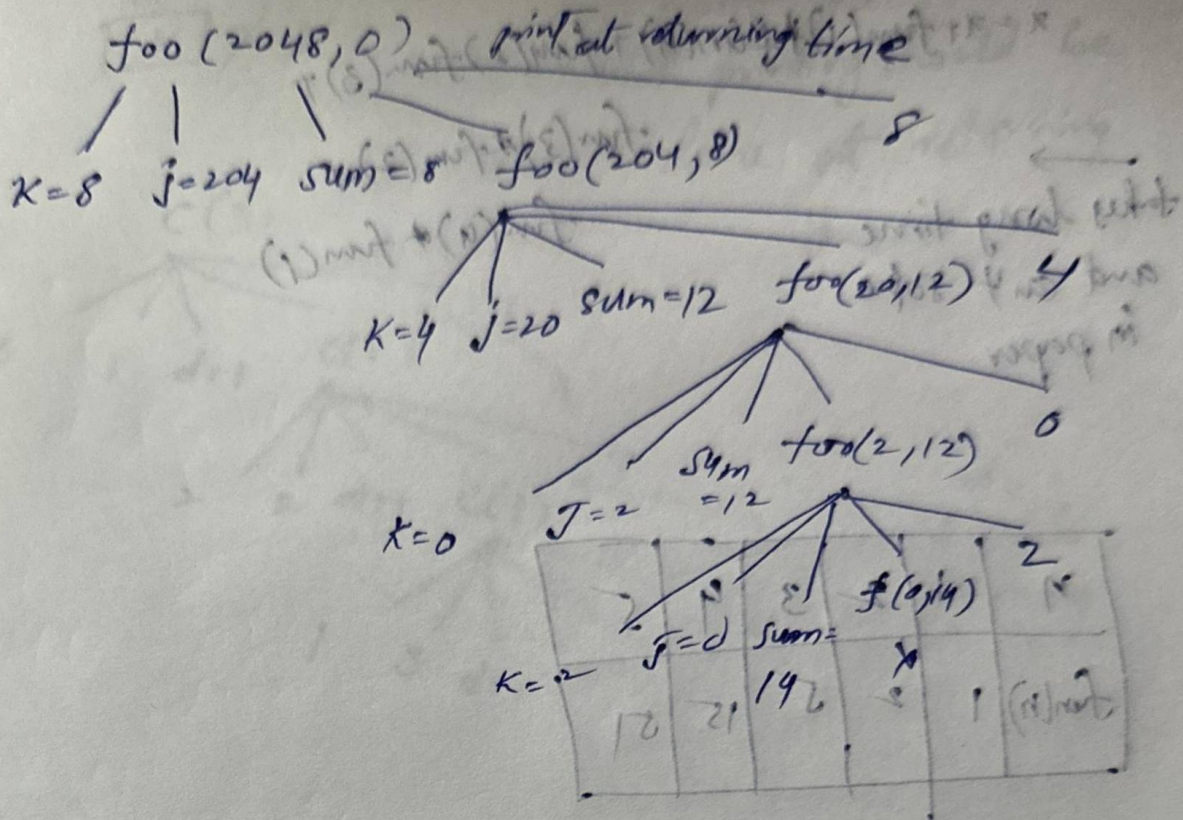 foo (2048,0) print at returning time
8
K=8 j=204 sum=8 foo(204,8)
K=4 j=20 sum=12 foo(20,12) 4
K=0 J=2 sum=12 foo(2,12) 0
K=2 j=0 sum=14 f(0,14) 2
x